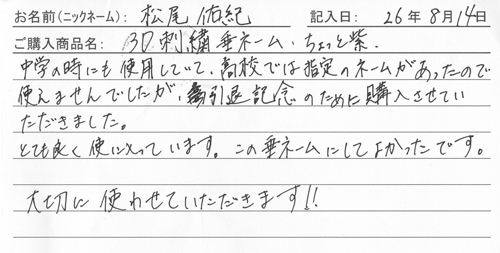 お名前(ニックネーム): 松尾 佑紀 記入日: 26年 8月 14日
ご購入商品名: 3D刺繍垂ネーム・ちょっと紫.
中学の時にも使用していて、高校では指定のネームがあったので
使えませんでしたが、引退記念のために購入させてい
ただきました。
とても良く使に入っています。この垂ネームにしてよかったです。
大切に使わせていただきます!!